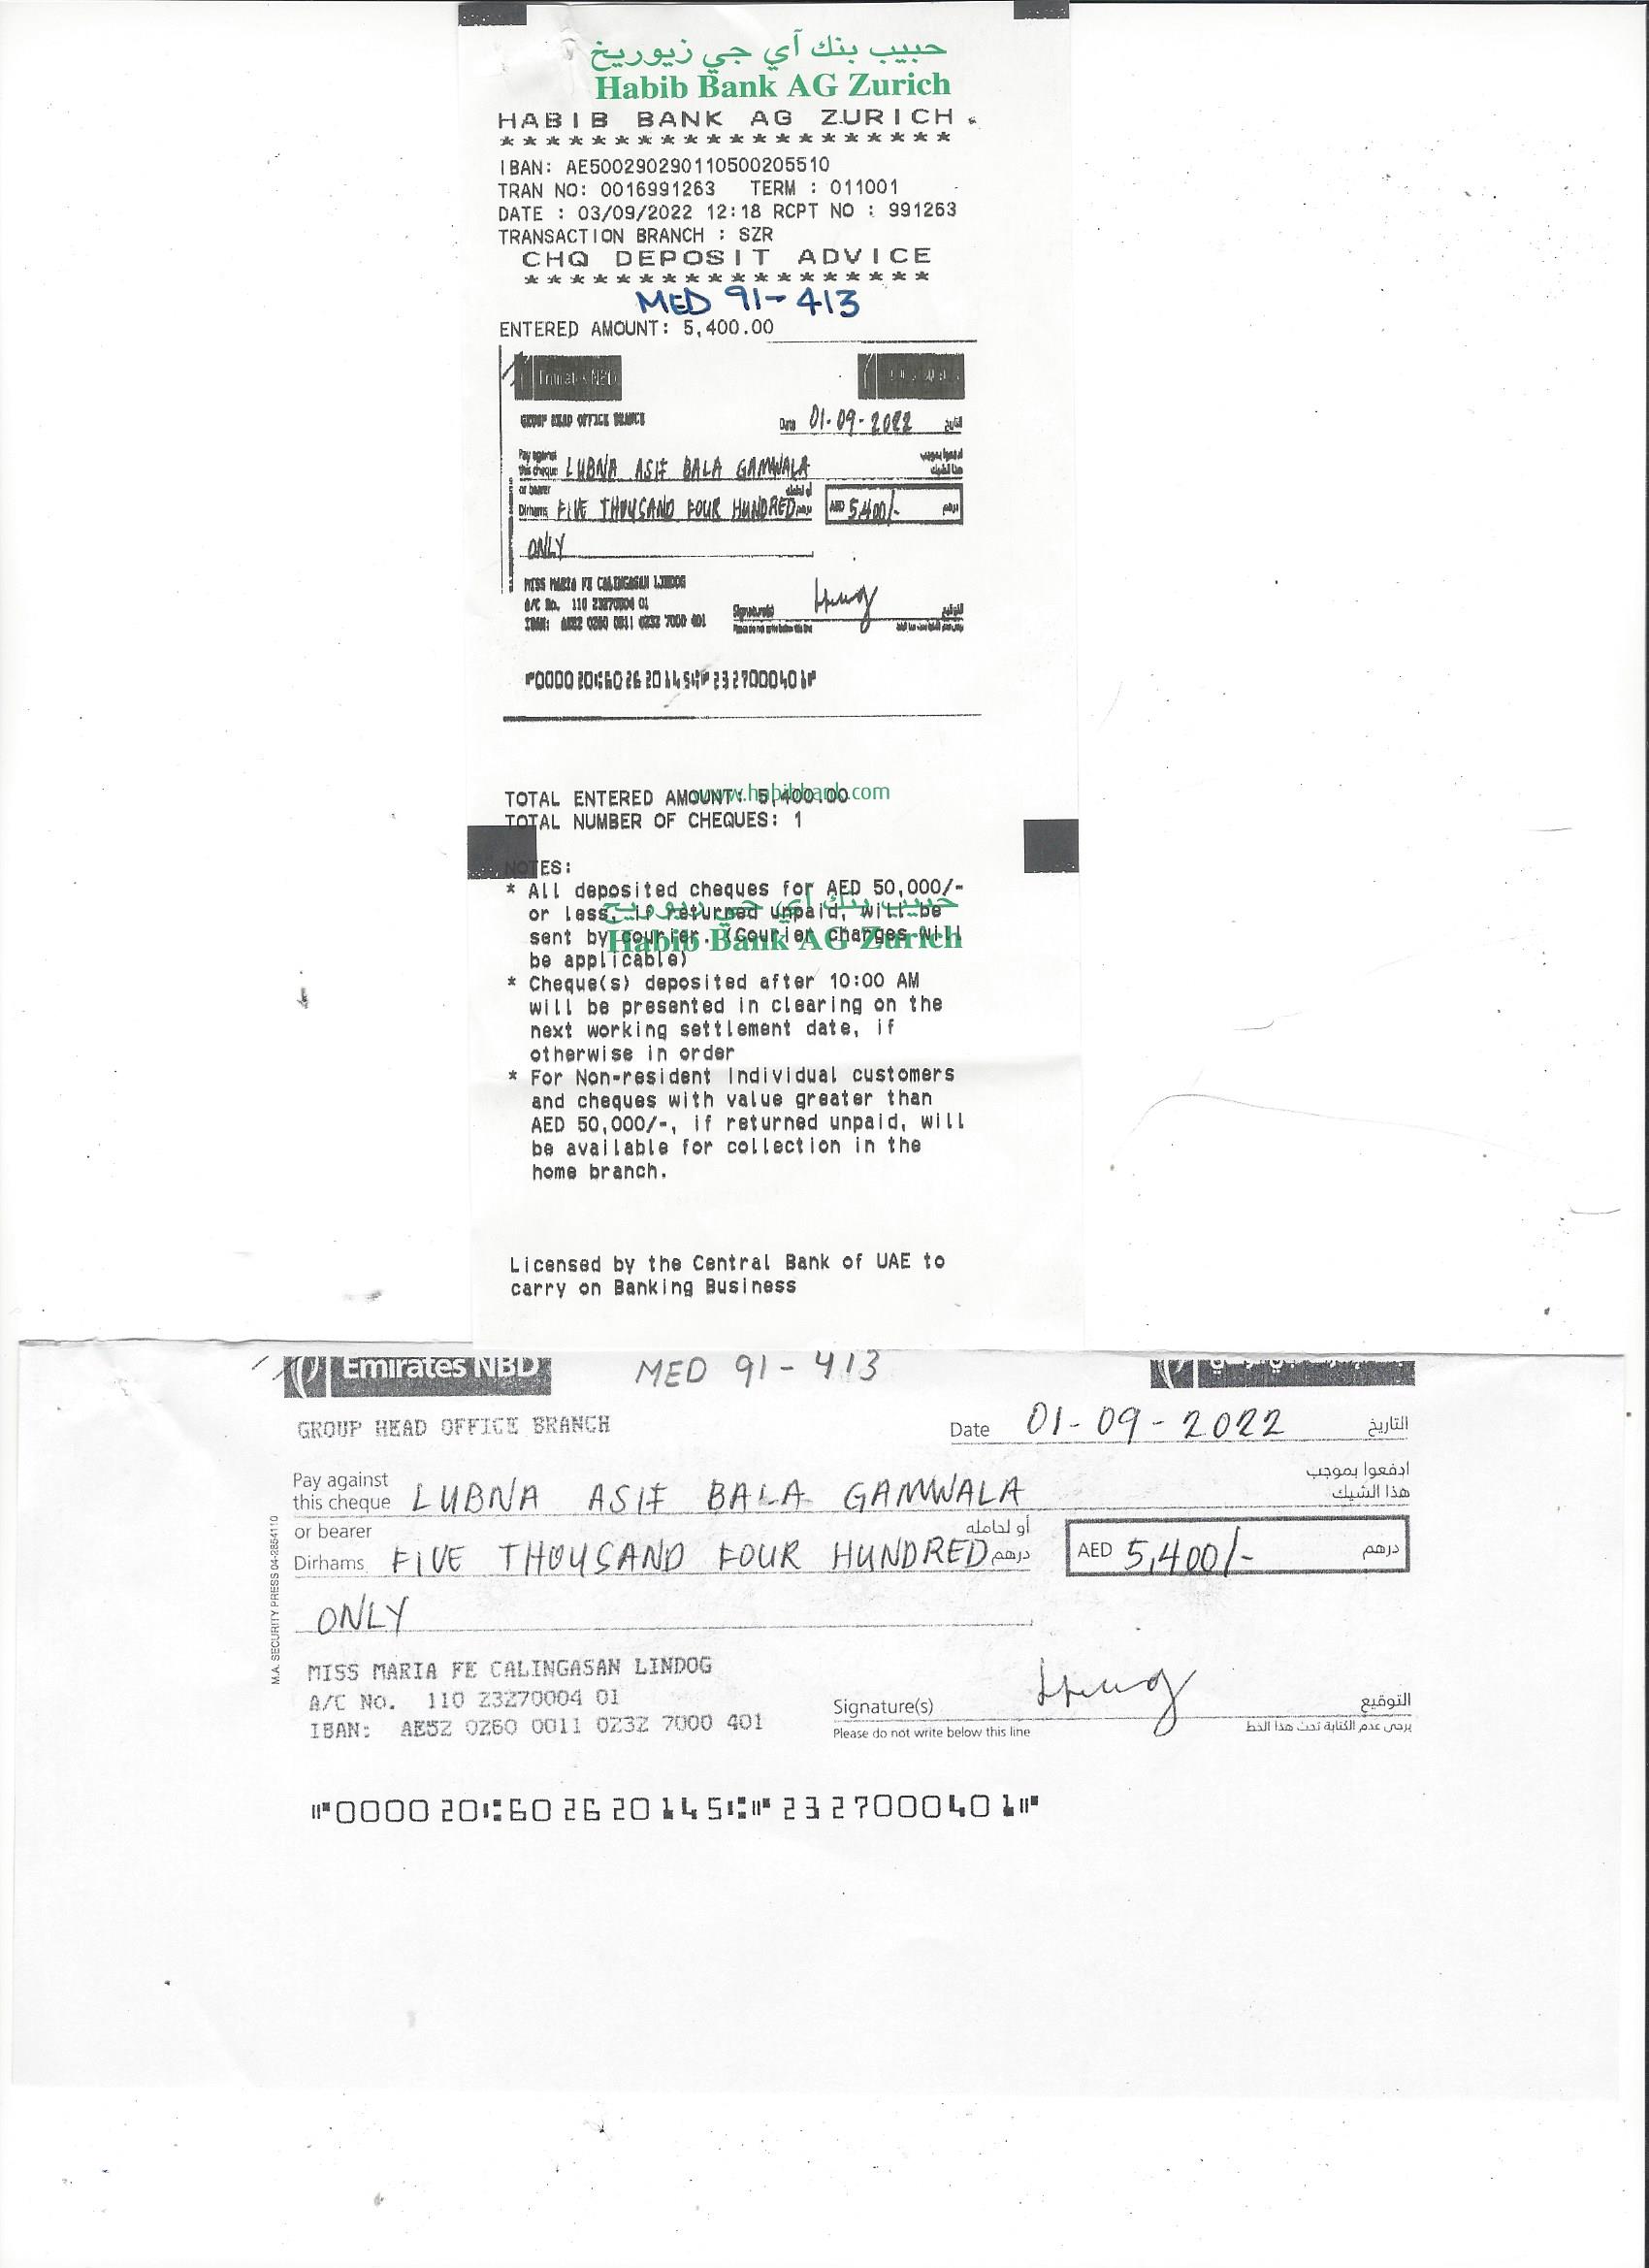 حبيب بنك آي جي زيوريخ
Habib Bank AG Zurich
HABIB BANK AG ZURICH.
********************
IBAN: AE500290290110500205510
TRAN NO: 0016991263 TERM : 011001
DATE : 03/09/2022 12:18 RCPT NO : 991263
TRANSACTION BRANCH : SZR
CHQ DEPOSIT ADVICE
******************
MED 91-413
ENTERED AMOUNT: 5,400.00
Emirates NBD
GROUP HEAD OFFICE BRANCH
Date 01-09-2022 التاريخ
Pay against
this cheque LUBNA ASIF BALA GAMWALA
or bearer
Dirhams FIVE THOUSAND FOUR HUNDRED درهم AED 5,400/- درهم
ONLY
MISS MARIA FE CALINGASAN LINDOG
A/C No. 110 23270004 01
IBAN: AE52 0260 0011 0232 7000 401
Signature(s) التوقيع
Please do not write below this line
⑈000020⑆602620145⑆⑈2327000401⑈
www.habibbank.com
TOTAL ENTERED AMOUNT: 5,400.00
TOTAL NUMBER OF CHEQUES: 1
NOTES:
* All deposited cheques for AED 50,000/-
or less, if returned unpaid, will be
sent by courier. (Courier charges will
be applicable)
حبيب بنك آي جي زيوريخ
Habib Bank AG Zurich
* Cheque(s) deposited after 10:00 AM
will be presented in clearing on the
next working settlement date, if
otherwise in order
* For Non-resident Individual customers
and cheques with value greater than
AED 50,000/-, if returned unpaid, will
be available for collection in the
home branch.
Licensed by the Central Bank of UAE to
carry on Banking Business
Emirates NBD MED 91-413
GROUP HEAD OFFICE BRANCH
Date 01-09-2022 التاريخ
Pay against ادفعوا بموجب
this cheque LUBNA ASIF BALA GAMWALA هذا الشيك
or bearer أو لحامله
Dirhams FIVE THOUSAND FOUR HUNDRED درهم AED 5,400/- درهم
ONLY
M.A. SECURITY PRESS 04-2854110
MISS MARIA FE CALINGASAN LINDOG
A/C No. 110 23270004 01
IBAN: AE52 0260 0011 0232 7000 401
Signature(s) التوقيع
Please do not write below this line يرجى عدم الكتابة تحت هذا الخط
⑈000020⑆602620145⑆⑈2327000401⑈